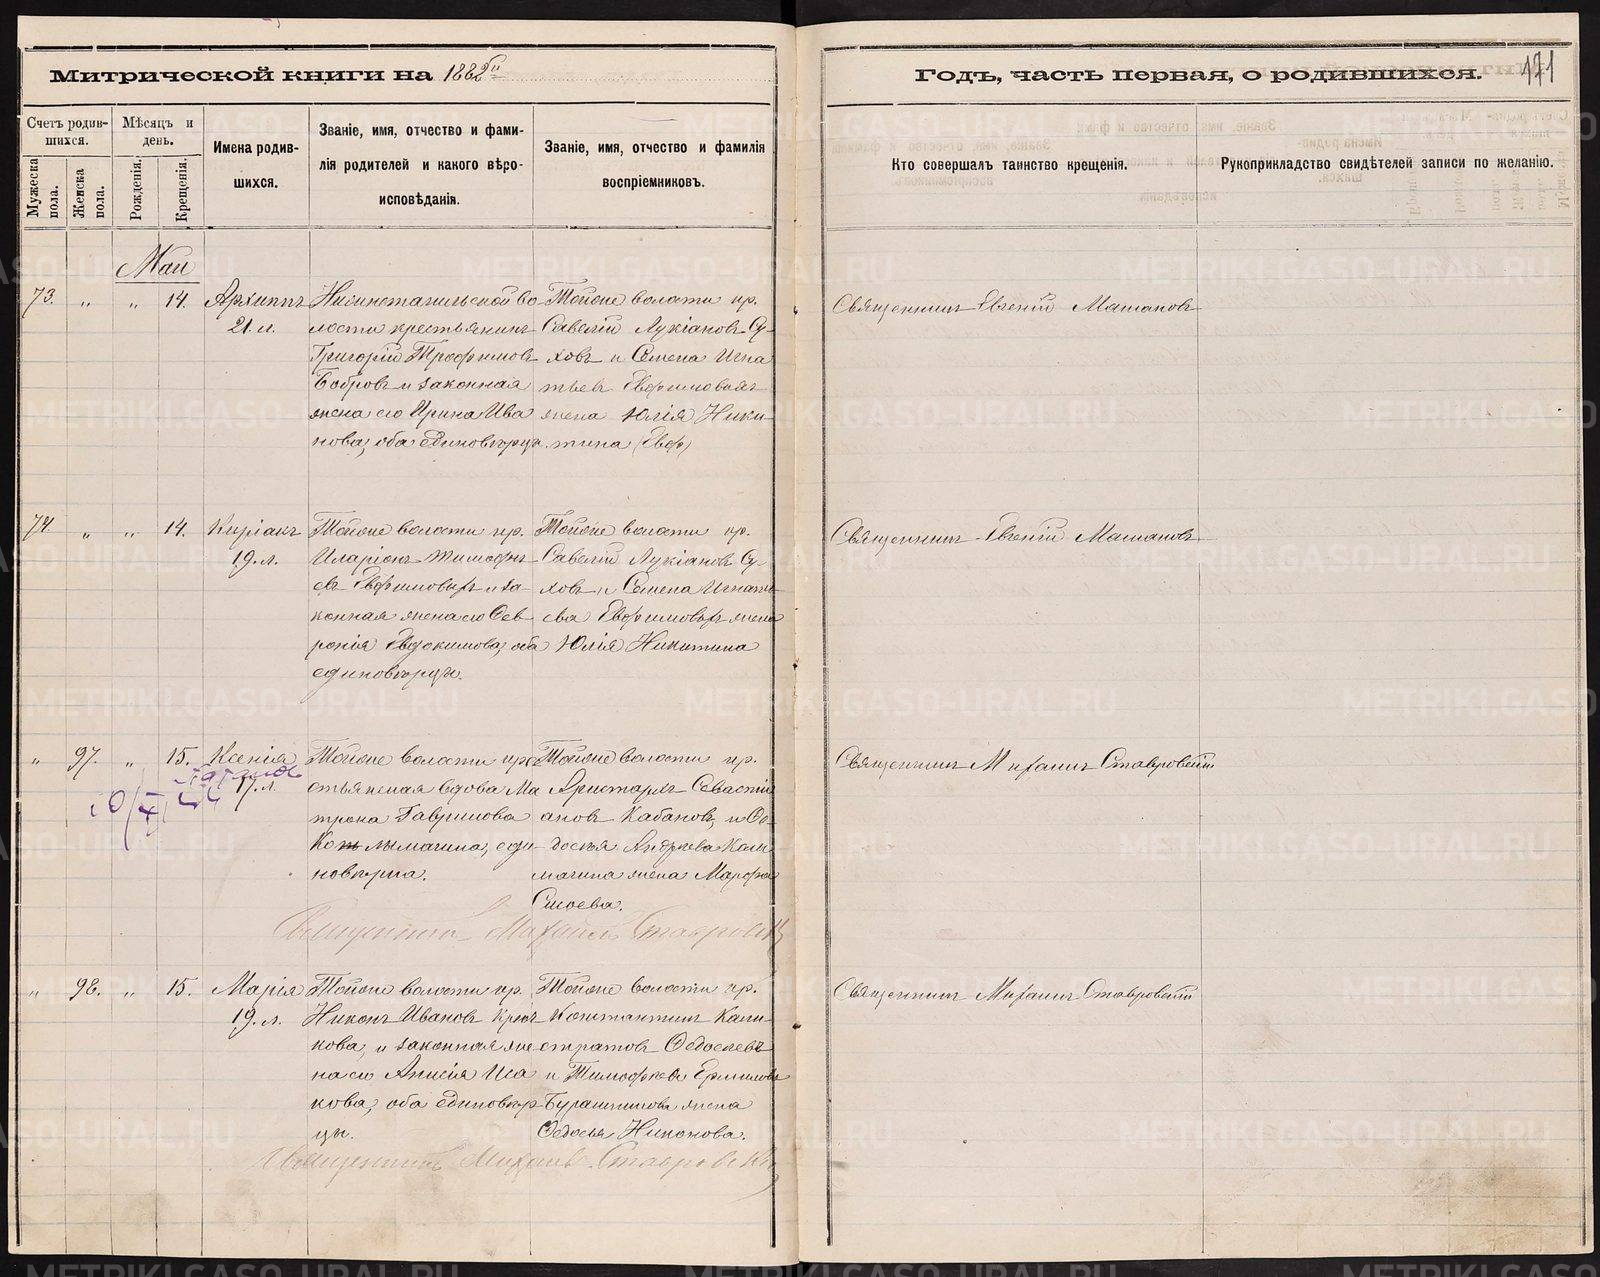 Митрической книги на 1882й
Годъ, часть первая, о родившихся. 171
Счетъ родив-
шихся.
Мужеска
пола.
Женска
пола.
Мѣсяцъ и
день.
Рожденія.
Крещенія.
Имена родив-
шихся.
Званіе, имя, отчество и фами-
лія родителей и какого вѣро-
исповѣданія.
Званіе, имя, отчество и фамилія
воспріемниковъ.
Кто совершалъ таинство крещенія.
Рукоприкладство свидѣтелей записи по желанію.
Май
73. " " 14.
Архиппъ
21 л.
волости крестьянинъ
Григорій Трофимовъ
Бобровъ и законная
жена его Ирина Ива
нова, оба единовѣрцы.
Тойоне волости кр.
Савелій Лукіановъ Су-
ховъ и Семена Игна
тьев Евфимовыхъ
жена Юлія Ники-
тина (Евф)
Священникъ Евгеній Машановъ
74. " " 14.
Киріакъ
19. л.
Тойоне волости кр.
Иларіонъ Тимофѣ-
евъ Евфимовыхъ и за-
конная жена его Фев
ронія Евдокимова, оба
единовѣрцы.
Тойоне волости кр.
Савелій Лукіановъ Су-
ховъ и Семена Игнать
ева Евфимовыхъ жена
Юлія Никитина
Священникъ Евгеній Машановъ
" 97. " 15.
Ксенія
17. л.
Тойоне волости кре
стьянская вдова Ма
трона Гаврилова
единовѣрка.
Тойоне волости кр.
Аристархъ Севастьи
ановъ Кабановъ, и Фе-
досѣя Андреева Кали
магина жена Марфа
Сысоева.
Священникъ Михаилъ Ставровскій
Священникъ Михаилъ Ставровскій
" 98. " 15.
Марія
19. л.
Тойоне волости кр.
Никонъ Ивановъ Крюч
кова, и законная же
на его Анисія Иса
кова, оба единовѣр
цы.
Тойоне волости кр.
Константинъ Кали
стратовъ Федосѣевъ
и Тимофѣева Ермилова
Бурашникова жена
Федосья Никонова.
Священникъ Михаилъ Ставровскій
Священникъ Михаилъ Ставровскій
METRIKI.GASO-URAL.RU